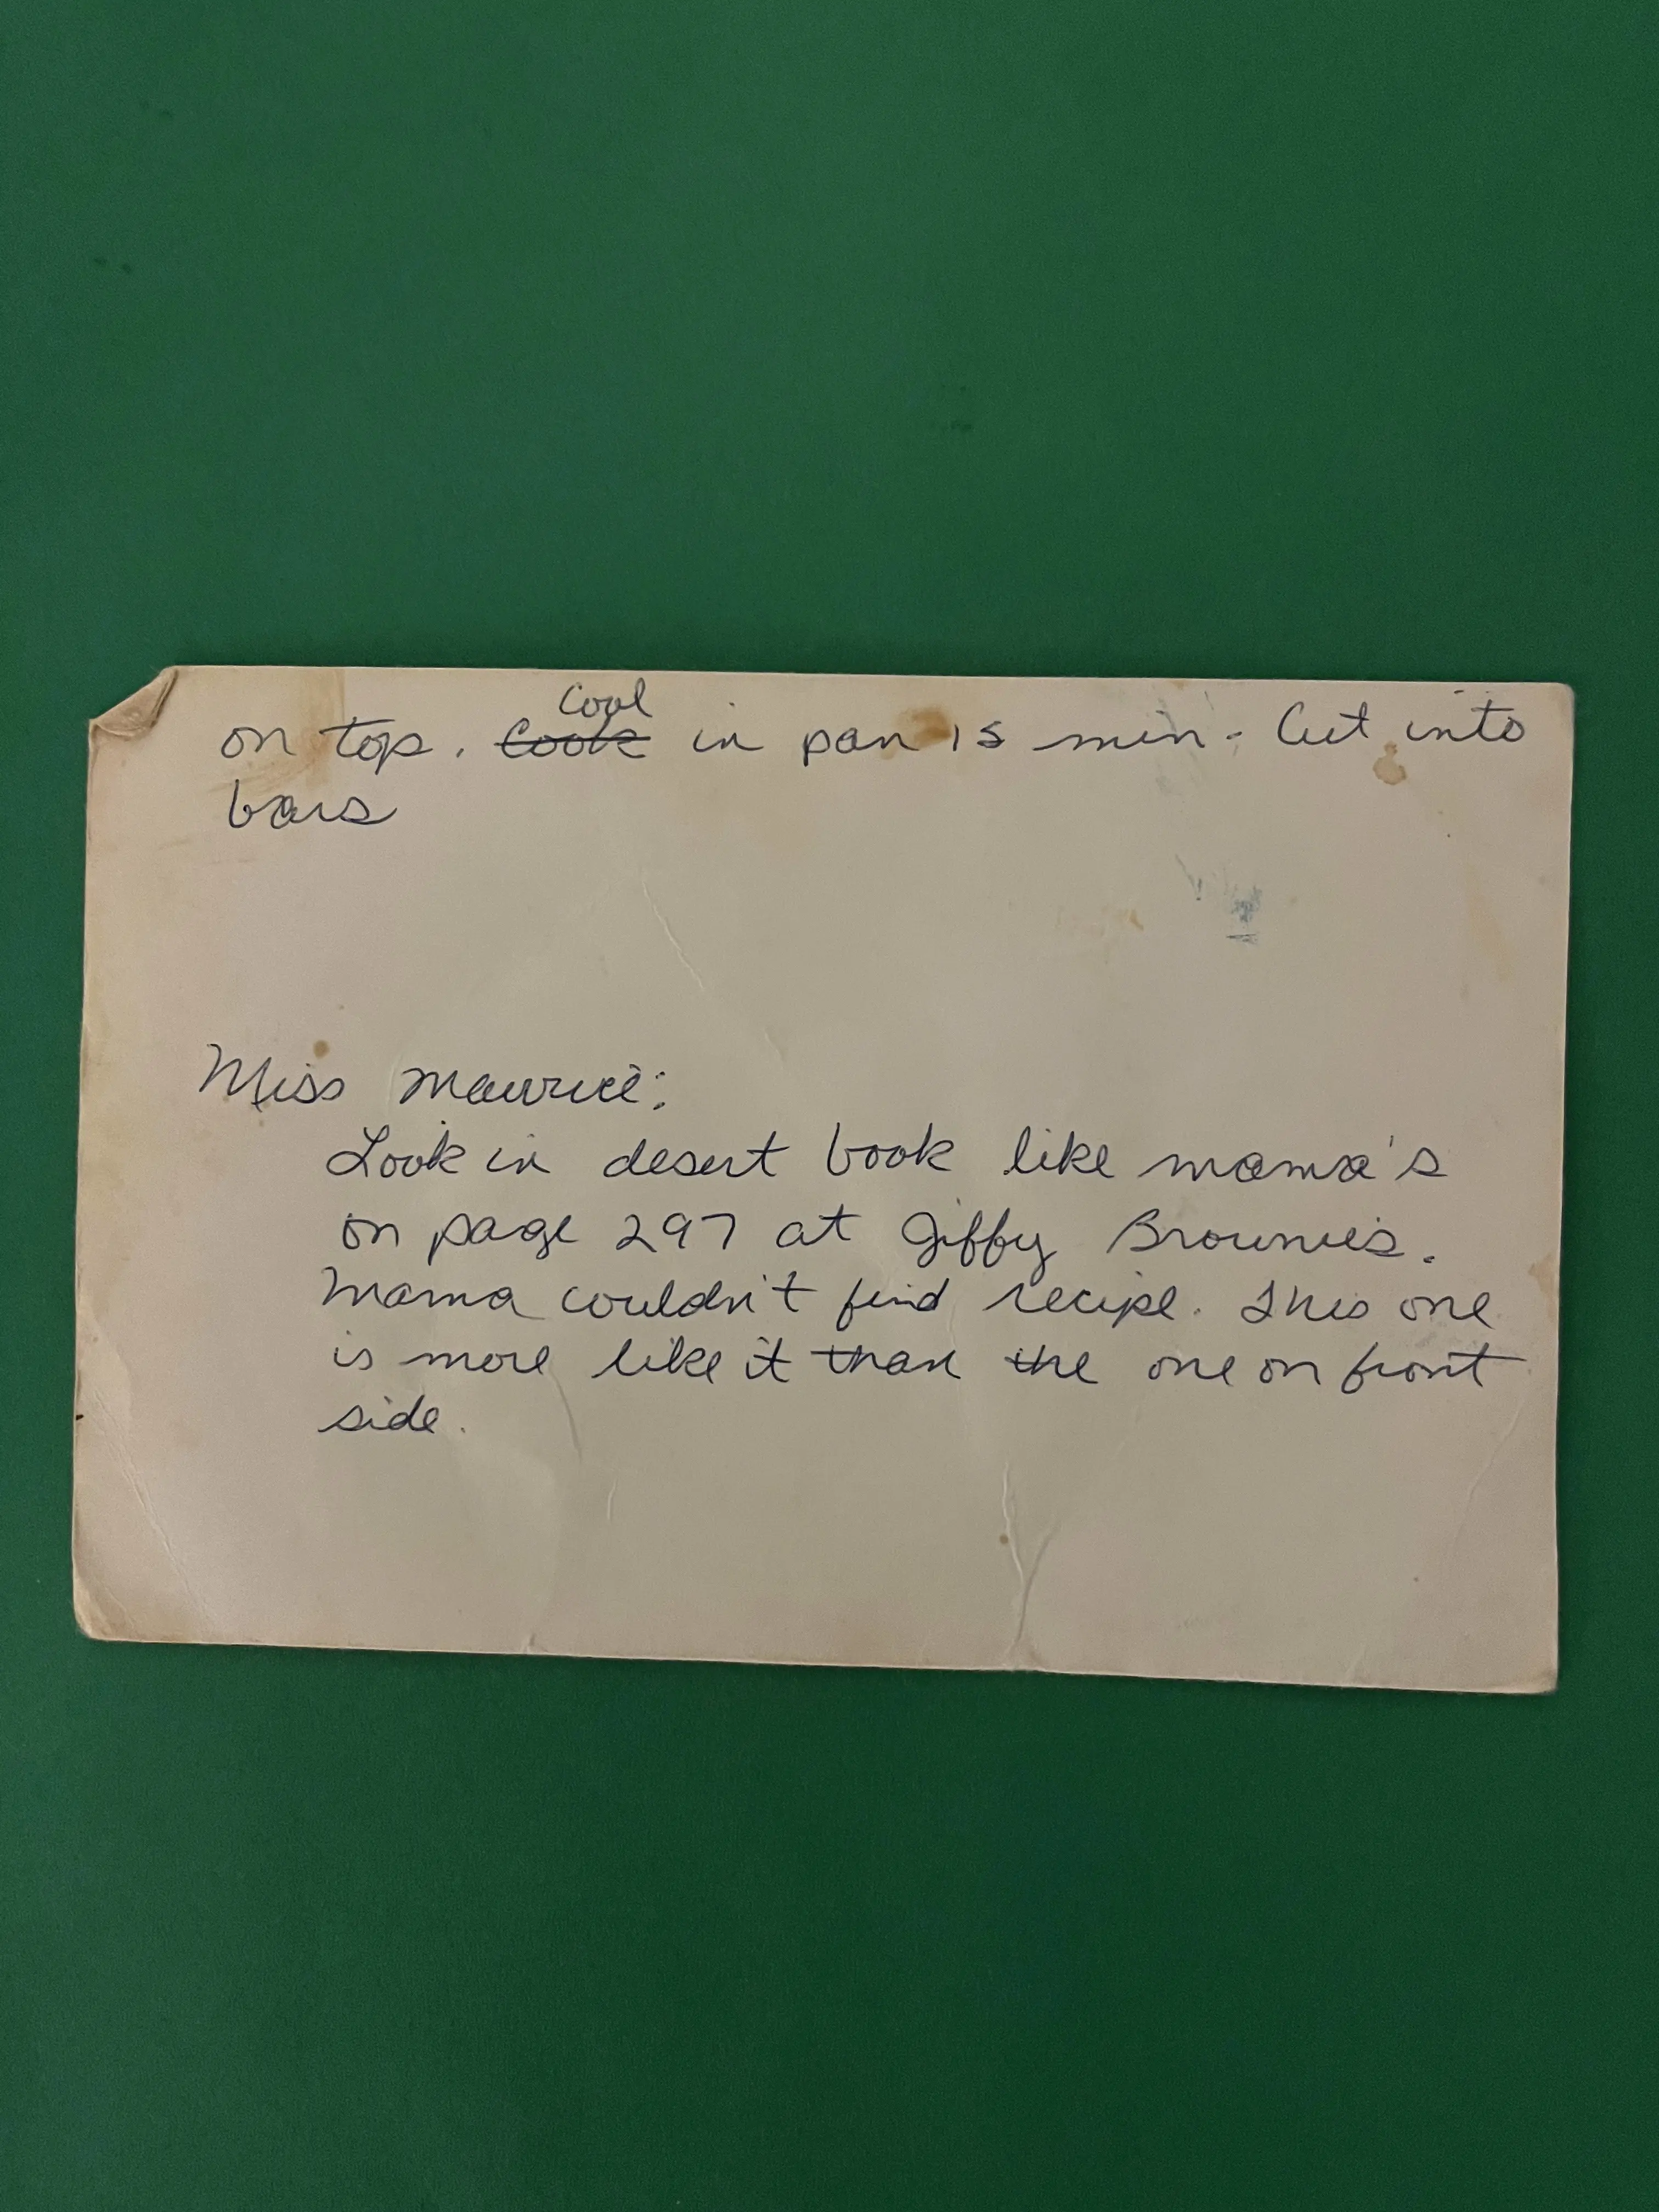 on top. Cool
~~Cook~~ in pan 15 min. Cut into
bars
Miss Maurice:
Look in desert book like mama's
on page 297 at Jiffy Brownies.
Mama couldn't find recipe. This one
is more like it than the one on front
side.